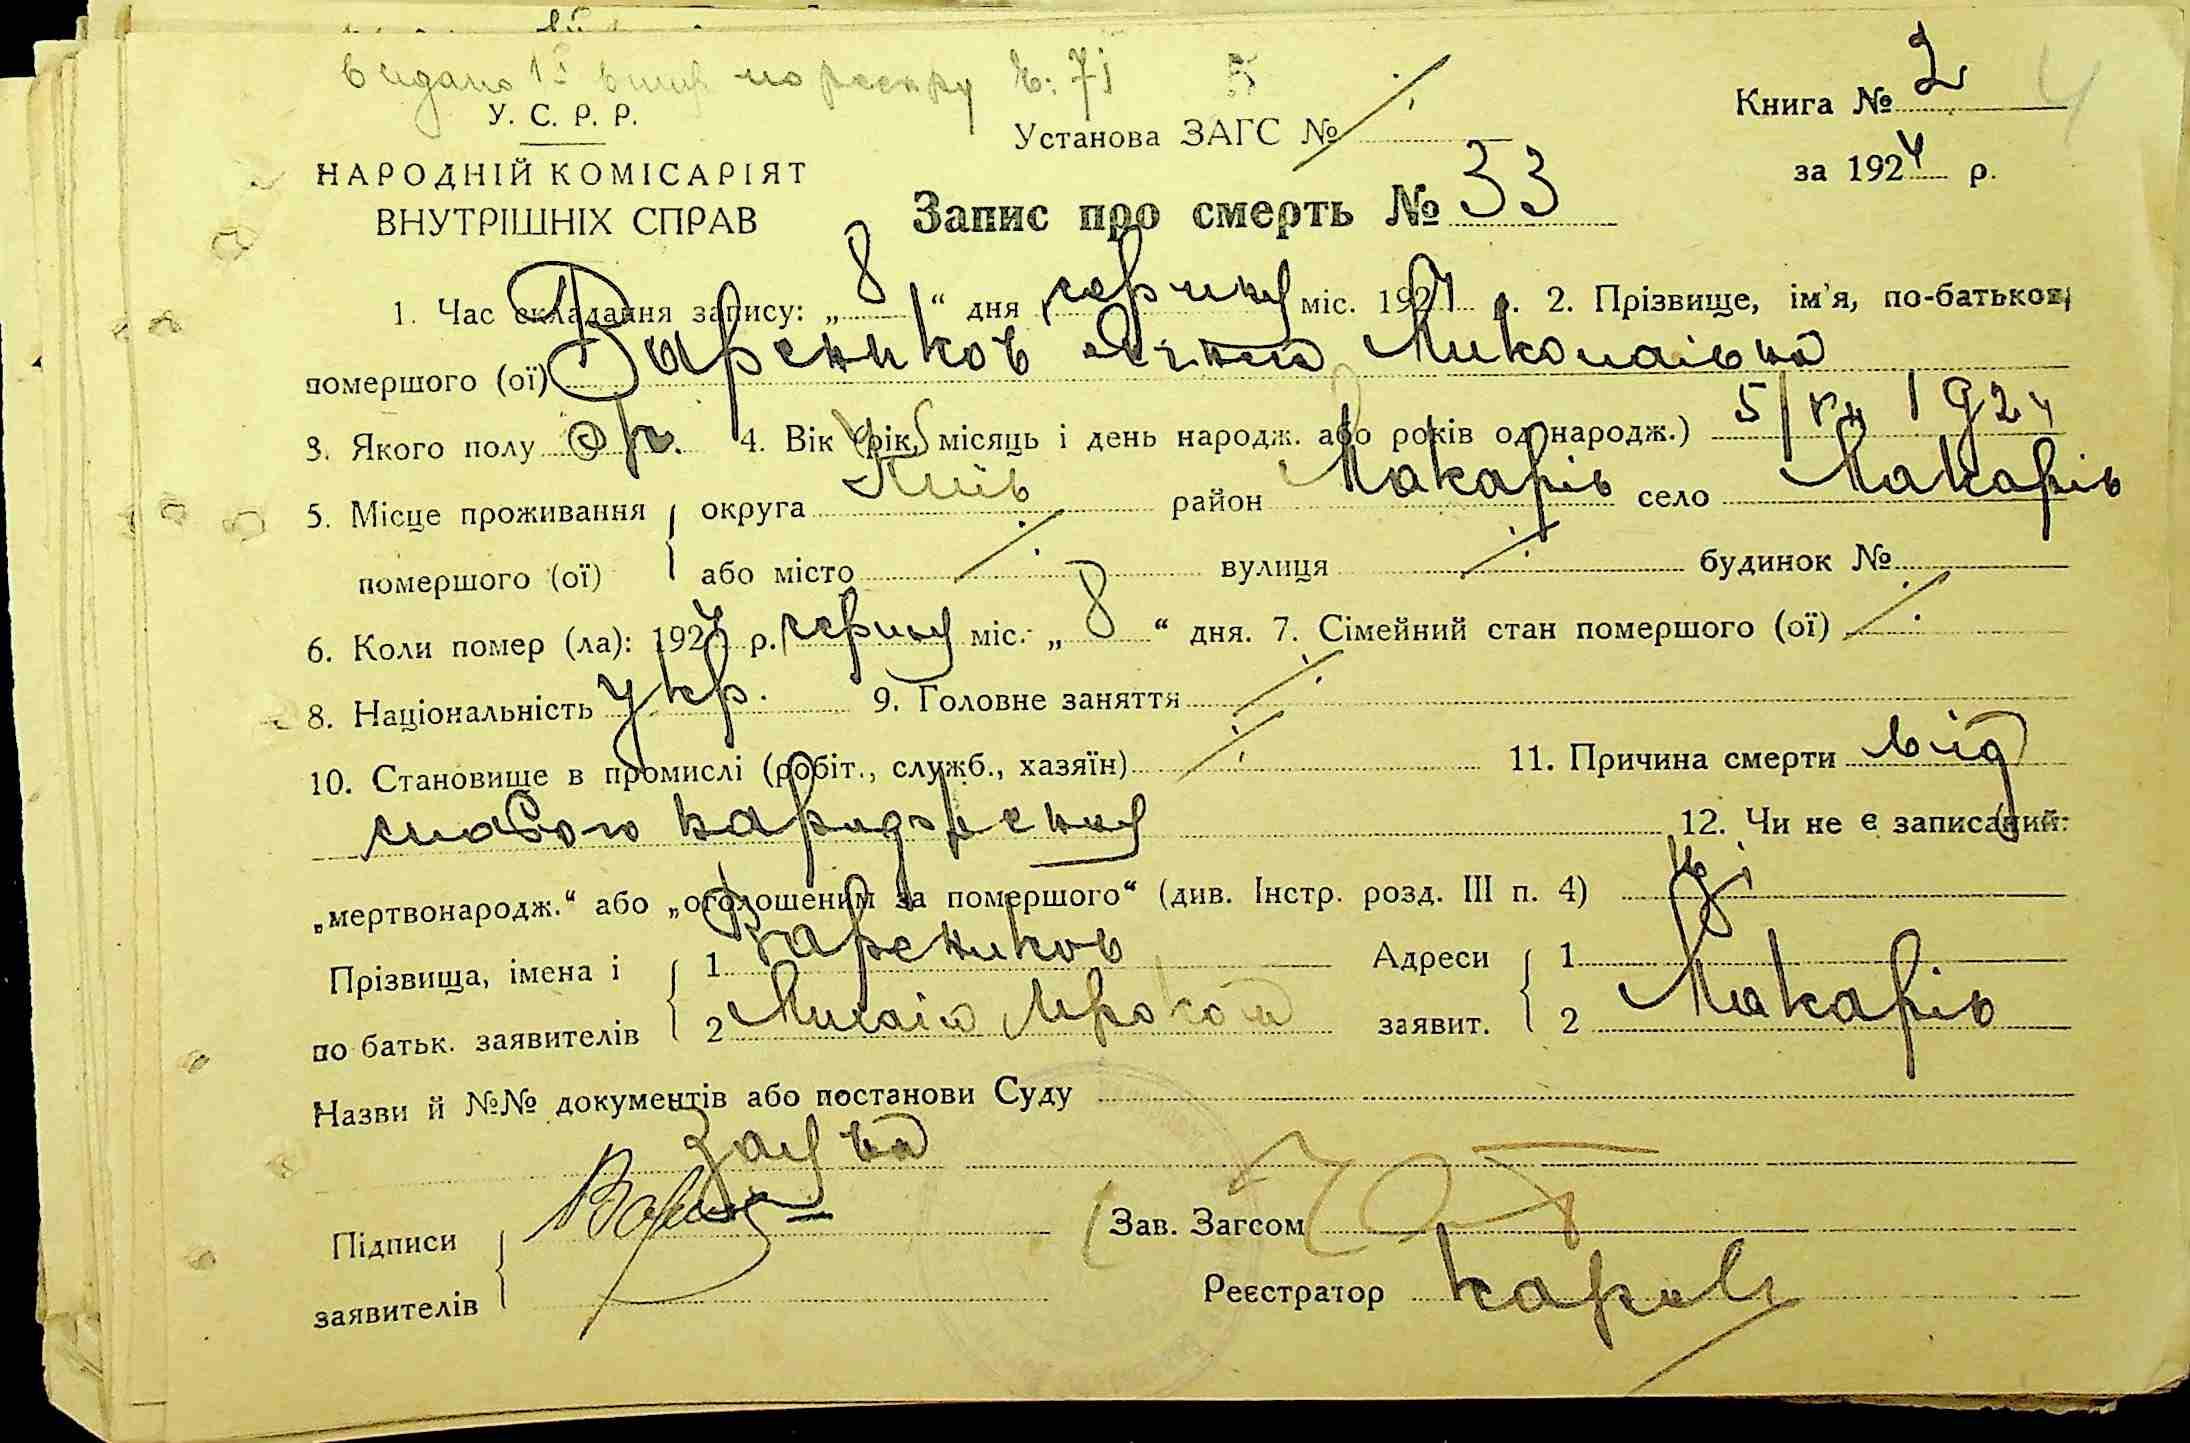 видано по реєстру №: 71 5
У. С. Р. Р.
Установа ЗАГС №
Книга № 2 4
НАРОДНІЙ КОМІСАРІЯТ
за 1924 р.
ВНУТРІШНІХ СПРАВ
Запис про смерть № 33
1. Час складання запису: „ 8 “ дня червня міс. 1924 р. 2. Прізвище, ім'я, по-батькові
помершого (ої) Вареников Миколаівна
3. Якого полу 4. Вік (рік, місяць і день народж. або років од народж.) 5/VI 1924
5. Місце проживання округа Київ район Макарів село Макарів
помершого (ої) або місто вулиця будинок №
6. Коли помер (ла): 1924 р. міс. „ 8 “ дня. 7. Сімейний стан помершого (ої)
8. Національність укр. 9. Головне заняття
10. Становище в промислі (робіт., служб., хазяїн) 11. Причина смерти від
слабого 12. Чи не є записаний:
„мертвонародж.“ або „оголошеним за помершого“ (див. Інстр. розд. III п. 4) Ні
Прізвища, імена і 1 Вареников Адреси 1
по батьк. заявителів 2 заявит. 2 Макарів
Назви й №№ документів або постанови Суду
Заява
Підписи Зав. Загсом
заявителів Реєстратор